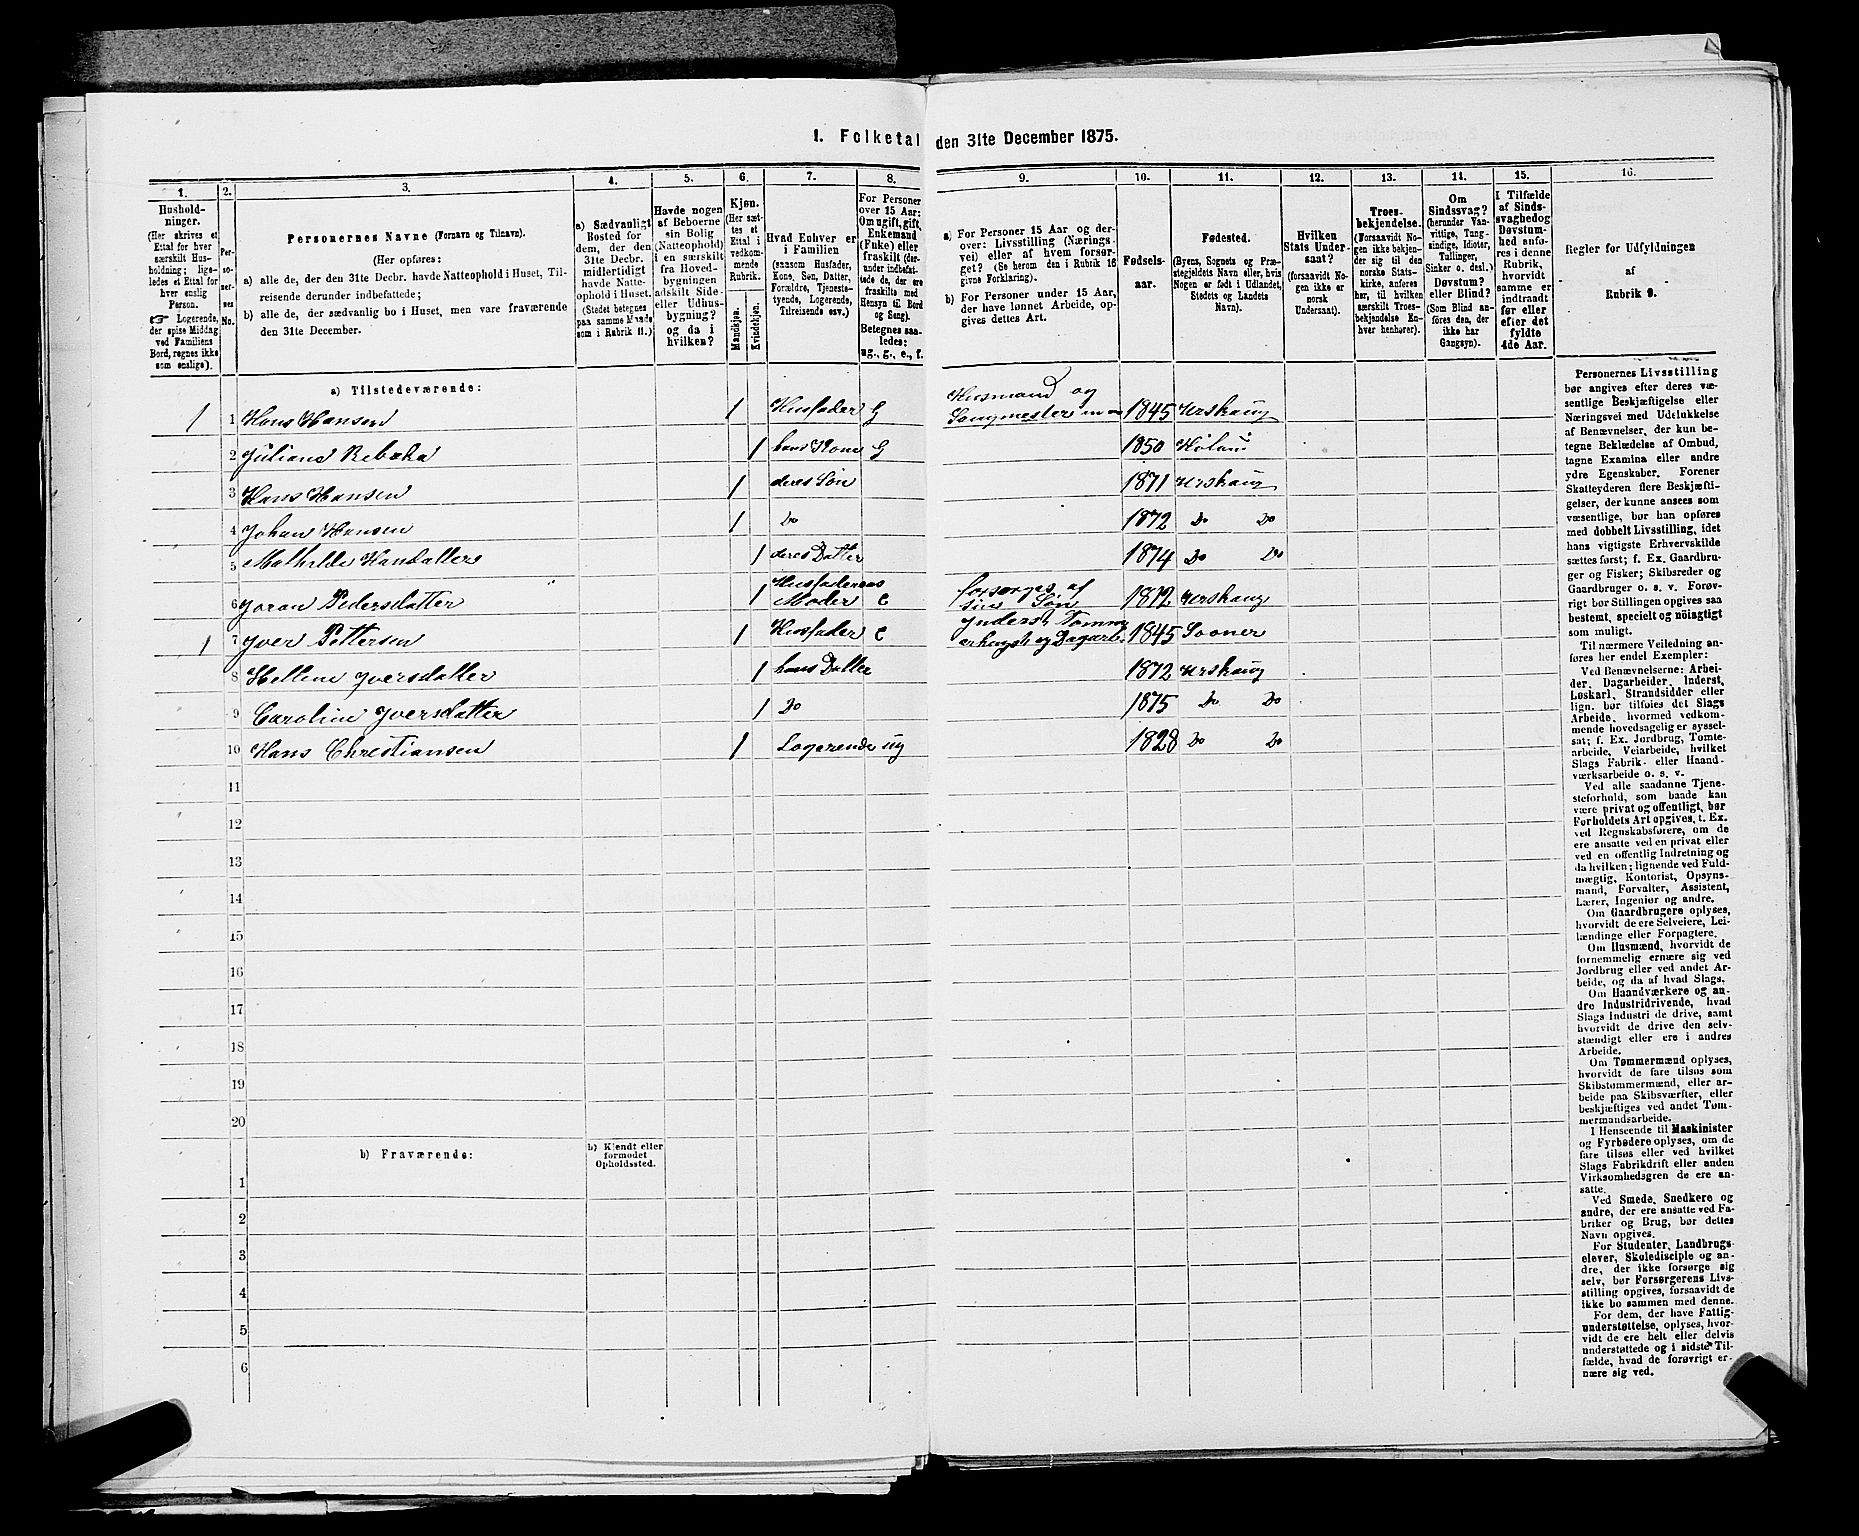 1. Folketal den 31te December 1875.
1. 2. 3. 4. 5. 6. 7. 8. 9. 10. 11. 12. 13. 14. 15. 16.
Hushold-
ninger.
(Her skrives et
Ettal for hver
særskilt Hus-
holdning; lige-
ledes et Ettal for
hver enslig
Person.
☞ Logerende,
der spise Middag
ved Familiens
Bord, regnes ikke
som enslige).
Per-
so-
ner-
nes
No.
Personernes Navne (Fornavn og Tilnavn).
(Her opføres:
a) alle de, der den 31te Decbr. havde Natteophold i Huset, Til-
reisende derunder indbefattede;
b) alle de, der sædvanlig bo i Huset, men vare fraværende
den 31te December.
a) Sædvanligt
Bosted for
dem, der den
31te Decbr.
midlertidigt
havde Natte-
ophold i Huset.
(Stedet betegnes
paa samme Maade
som i Rubrik 11.)
Havde nogen
af Beboerne
sin Bolig
(Natteophold)
i en særskilt
fra Hoved-
bygningen
adskilt Side-
eller Udhus-
bygning?
og da i
hvilken?
Kjøn.
(Her sæt-
tes et
Ettal i
vedkom-
mende
Rubrik.
Mandkjøn.
Kvindekjøn.
Hvad Enhver er
i Familien
(saasom Husfader,
Kone, Søn, Datter,
Forældre, Tjeneste-
tyende, Logerende,
Tilreisende osv.)
For Personer
over 15 Aar:
Om ugift, gift,
Enkemand
(Enke) eller
fraskilt (der-
under indbefat-
tede de, der ere
fraskilte med
Hensyn til Bord
og Seng).
Betegnes saa-
ledes:
ug., g., e., f.
a) For Personer 15 Aar og der-
over: Livsstilling (Nærings-
vei) eller af hvem forsør-
get? (Se herom den i Rubrik 16
givne Forklaring).
b) For Personer under 15 Aar,
der have lønnet Arbeide, op-
gives dettes Art.
Fødsels-
aar.
Fødested.
(Byens, Sognets og Præ-
stegjeldets Navn eller, hvis
Nogen er født i Udlandet,
Stedets og Landets
Navn).
Hvilken
Stats Under-
saat?
(forsaavidt No-
gen ikke er
norsk
Undersaat).
Troes-
bekjendelse.
(Forsaavidt No-
gen ikke bekjen-
der sig til den
norske Stats-
kirke, anføres
her, til hvilken
særskilt Troes-
bekjendelse En-
hver henhører).
Om
Sindssvag?
(herunder Van-
vittige, Tung-
sindige, Idioter,
Tullinger,
Sinker o. desl.)
Døvstum?
eller Blind?
(Som Blind an-
føres den, der
ikke har
Gangsyn).
I Tilfælde
af Sinds-
svaghed og
Døvstum-
hed anfø-
res i denne
Rubrik,
hvorvidt
samme er
indtraadt
før eller
efter det
fyldte
4de Aar.
Regler for Udfyldningen
af
Rubrik 9.
a) Tilstedeværende:
1 1 Hans Hansen 1 Husfader G Husmand og 1845 Urskaug
2 Juliane Rebæka 1 hans Kone G 1850 Høland
3 Hans Hansen 1 deres Søn 1871 Urskaug
4 Johan Hansen 1 Do 1872 Do Do
5 Mathilde Hansdatter 1 deres Datter 1874 Do Do
6 Joran Pedersdatter 1 Husfaderens Moder E forsørges af sin Søn 1812 Urskaug
1 7 Iver Pettersen 1 Husfader E Inderst 1845 Sooner
8 Hellene Iversdatter 1 hans Datter 1872 Urskaug
9 Caroline Iversdatter 1 Do 1875 Do Do
10 Hans Christiansen 1 Logerende ug 1828 Do Do
11
12
13
14
15
16
17
18
19
20
b) Fraværende:
b) Kjendt eller
formodet
Opholdssted.
1
2
3
4
5
6
Personernes Livsstilling
bør angives efter deres væ-
sentlige Beskjæftigelse eller
Næringsvei med Udelukkelse
af Benævnelser, der kun be-
tegne Beklædelse af Ombud,
tagne Examina eller andre
ydre Egenskaber. Forener
Skatteyderen flere Beskjæfti-
gelser, der kunne ansees som
væsentlige, bør han opføres
med dobbelt Livsstilling, idet
hans vigtigste Erhvervskilde
sættes først; f. Ex. Gaardbru-
ger og Fisker; Skibsreder og
Gaardbruger o. s. v. Forøv-
rigt bør Stillingen opgives saa
bestemt, specielt og nøiagtigt
som muligt.
Til nærmere Veiledning an-
føres her endel Exempler:
Ved Benævnelserne: Arbei-
der, Dagarbeider, Inderst,
Løskarl, Strandsidder eller
lign. bør tilføies det Slags
Arbeide, hvormed vedkom-
mende hovedsagelig er syssel-
sat; f. Ex. Jordbrug, Tomte-
arbeide, Veiarbeide, hvilket
Slags Fabrik- eller Haand-
værksarbeide o. s. v.
Ved alle saadanne Tjene-
steforhold, som baade kan
være privat og offentligt, bør
Forholdets Art opgives, t. Ex.
ved Regnskabsførere, om de
ere ansatte ved en privat eller
ved en offentlig Indretning og
da hvilken; lignende ved Fuld-
mægtig, Kontorist, Opsyns-
mand, Forvalter, Assistent,
Lærer, Ingeniør og andre.
Om Gaardbrugere oplyses,
hvorvidt de ere Selveiere, Lei-
lændinge eller Forpagtere.
Om Husmænd, hvorvidt de
fornemmelig ernære sig ved
Jordbrug eller ved andet Ar-
beide, og da af hvad Slags.
Om Haandværkere og an-
dre Industridrivende, hvad
Slags Industri de drive, samt
hvorvidt de drive den selv-
stændigt eller ere i andres
Arbeide.
Om Tømmermænd oplyses,
hvorvidt de fare tilsøs som
Skibstømmermænd, eller ar-
beide paa Skibsværfter, eller
beskjæftiges ved andet Tøm-
mermandsarbeide.
I Henseende til Maskinister
og Fyrbødere oplyses, om de
fare tilsøs eller ved hvilket
Slags Fabrikdrift eller anden
Virksomhedsgren de ere an-
satte.
Ved Smede, Snedkere og
andre, der ere ansatte ved Fa-
briker og Brug, bør dettes
Navn opgives.
For Studenter, Landbrugs-
elever, Skoledisciple og an-
dre, der ikke forsørge sig
selv, bør Forsørgerens Livs-
stilling opgives, forsaavidt de
ikke bo sammen med denne.
For dem, der have Fattig-
understøttelse, oplyses, hvor-
vidt de ere helt eller delvis
understøttede og i sidste Til-
fælde, hvad de forøvrigt er-
nære sig ved.